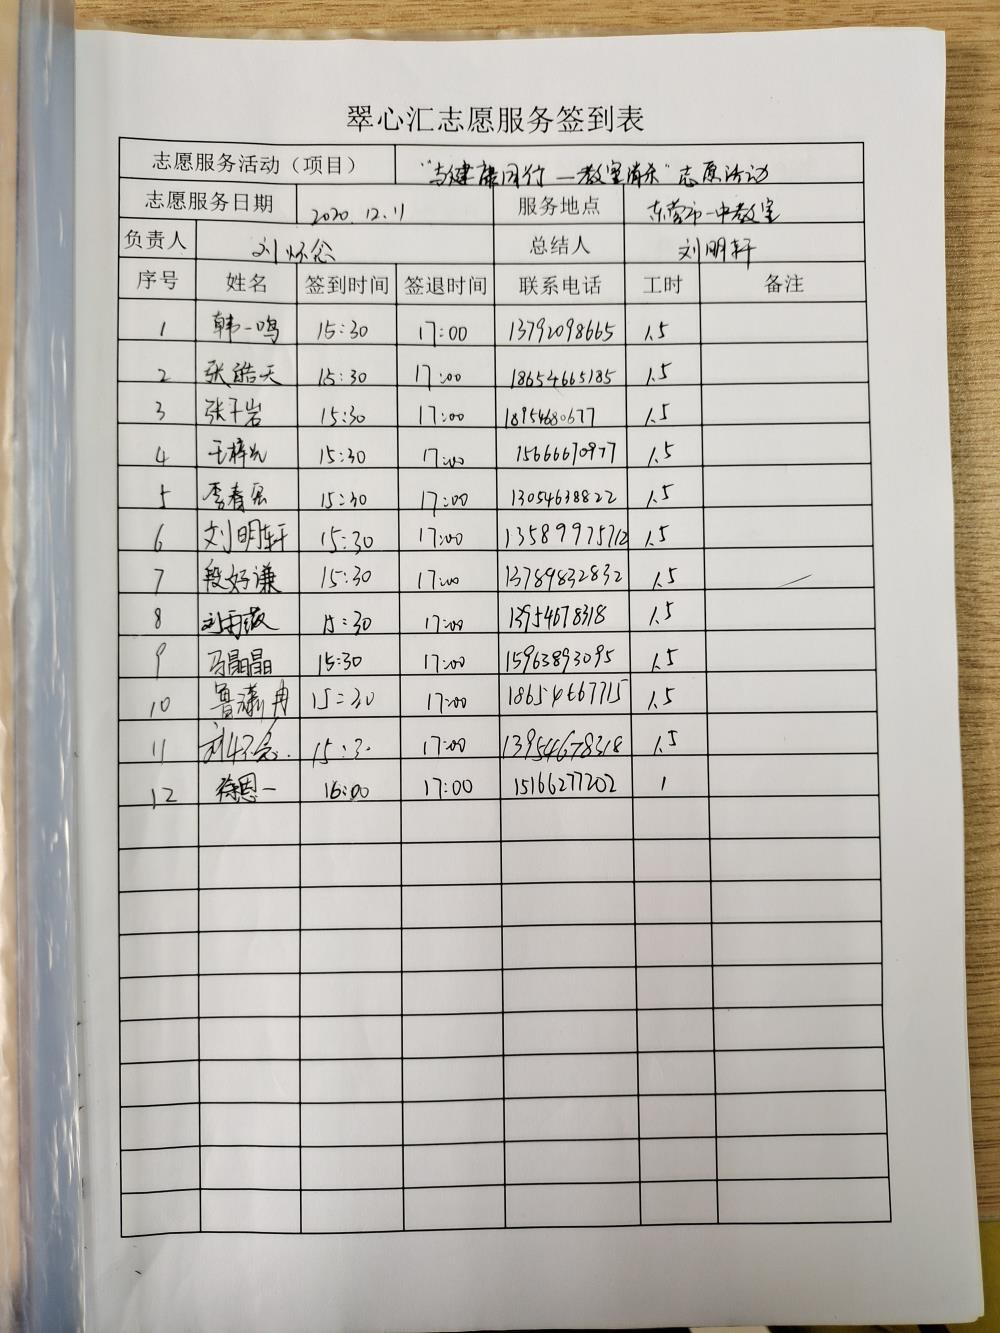 翠心汇志愿服务签到表
志愿服务活动（项目） “与健康同行—教室消杀”志愿活动
志愿服务日期 2020.12.11 服务地点 东营市一中教室
负责人 刘怀念 总结人 刘明轩
序号 姓名 签到时间 签退时间 联系电话 工时 备注
1 韩一鸣 15:30 17:00 13792098665 1.5
2 张皓天 15:30 17:00 18654665185 1.5
3 张千岩 15:30 17:00 18954680677 1.5
4 15:30 17:00 15666670977 1.5
5 李春 15:30 17:00 13054638822 1.5
6 刘明轩 15:30 17:00 13589975712 1.5
7 段好谦 15:30 17:00 13789832832 1.5
8 15:30 17:00 13954678318 1.5
9 马晶晶 15:30 17:00 15963893095 1.5
10 鲁潇冉 15:30 17:00 18654667715 1.5
11 刘怀念 15:3 17:00 13954678318 1.5
12 徐恩一 16:00 17:00 15166277202 1